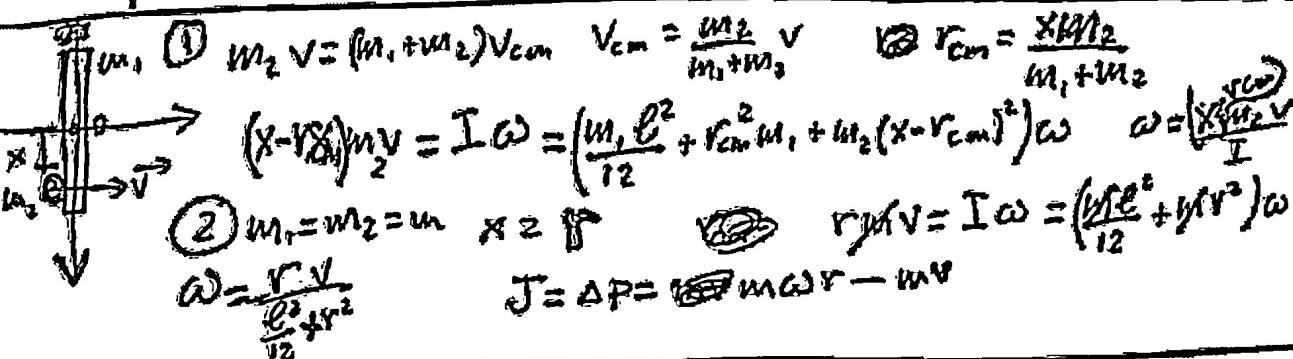 ① m₂ v = (m₁+m₂)Vcm Vcm = m₂/(m₁+m₂) v rcm = xm₂/(m₁+m₂)
m₁
0
(x-rcm)m₂v = Iω = (m₁ℓ²/12 + rcm² m₁ + m₂(x-rcm)²)ω ω =
x
m₂ v
② m₁=m₂=m x = r rmv = Iω = (mℓ²/12 + mr²)ω
ω = r v/(ℓ²/12 + r²) J = ΔP = mωr - mv